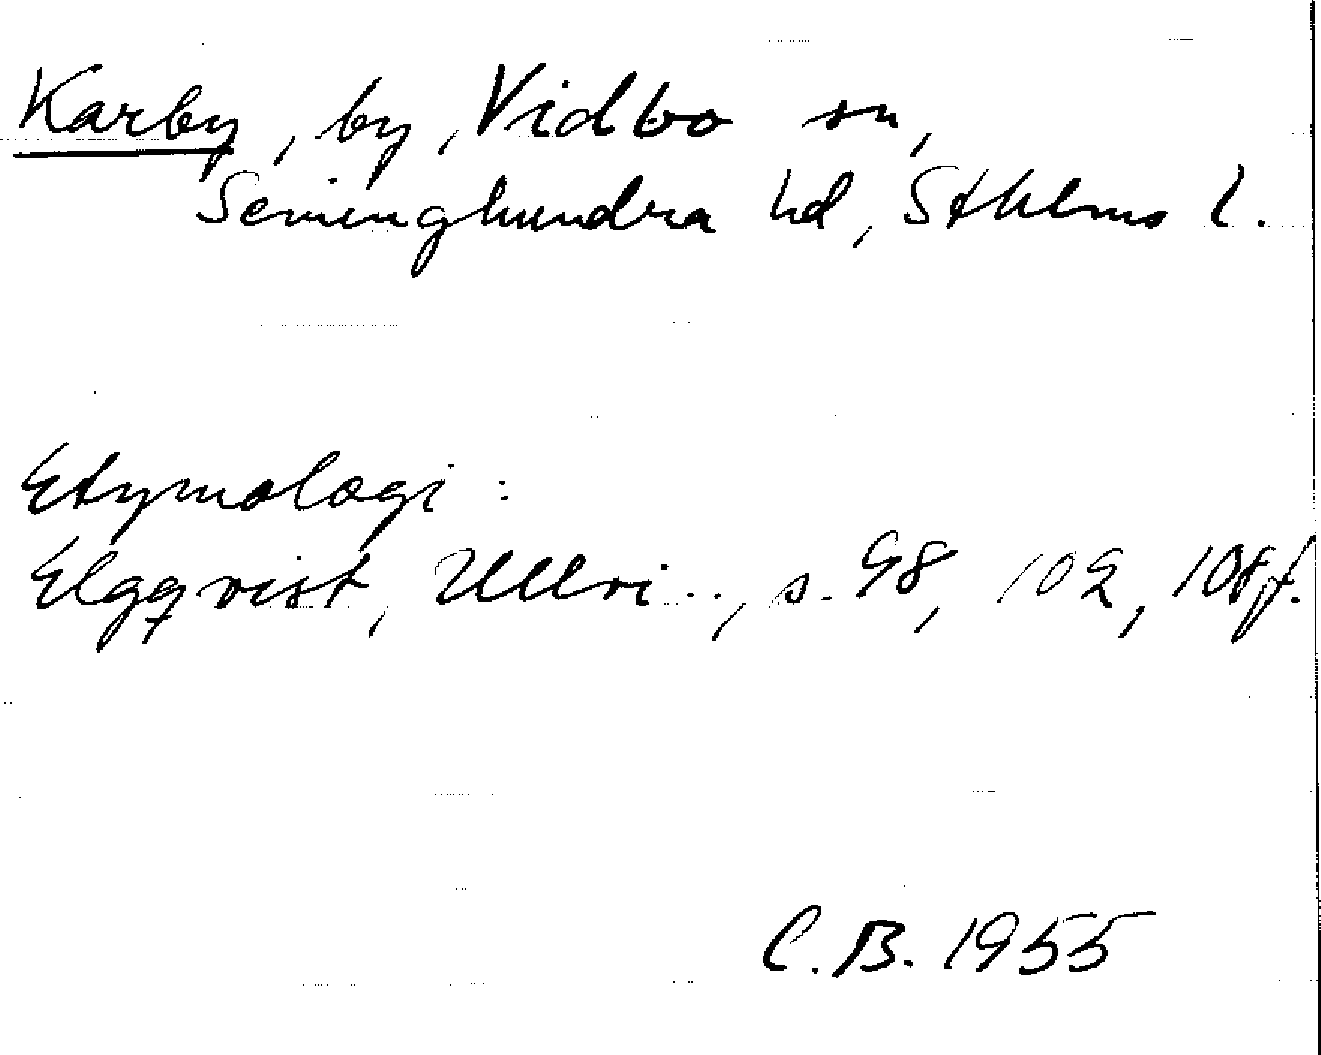 Karby, by, Vidbo sn,
Seminghundra hd, Sthlms l.
Etymologi:
Elgqvist, Ullvi.., s. 98, 102, 108f.
C.B. 1955